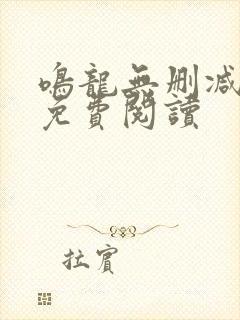 鳴龍無删减
免費閱讀
拉賓